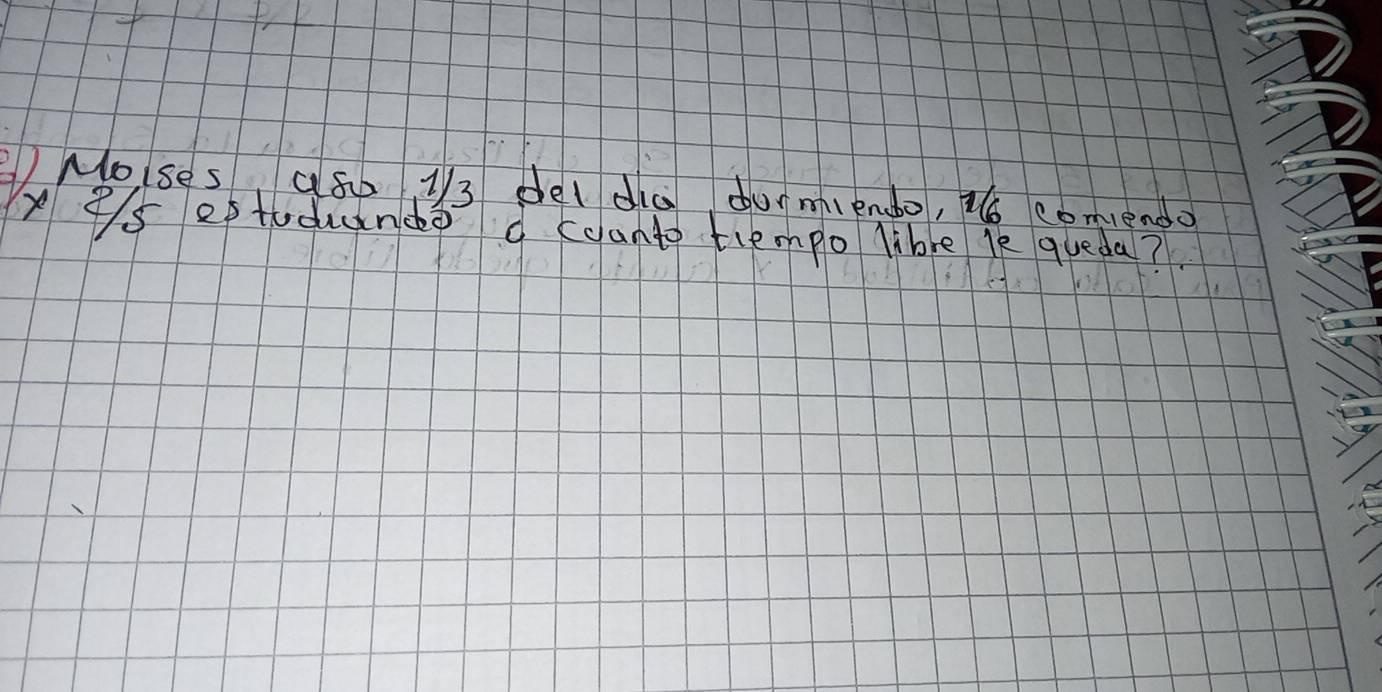 Moises, aso 1/3 del dia durmiendo, 1/6 comiendo
x 2/5 estudiando ¿ cuanto tiempo libre le queda?